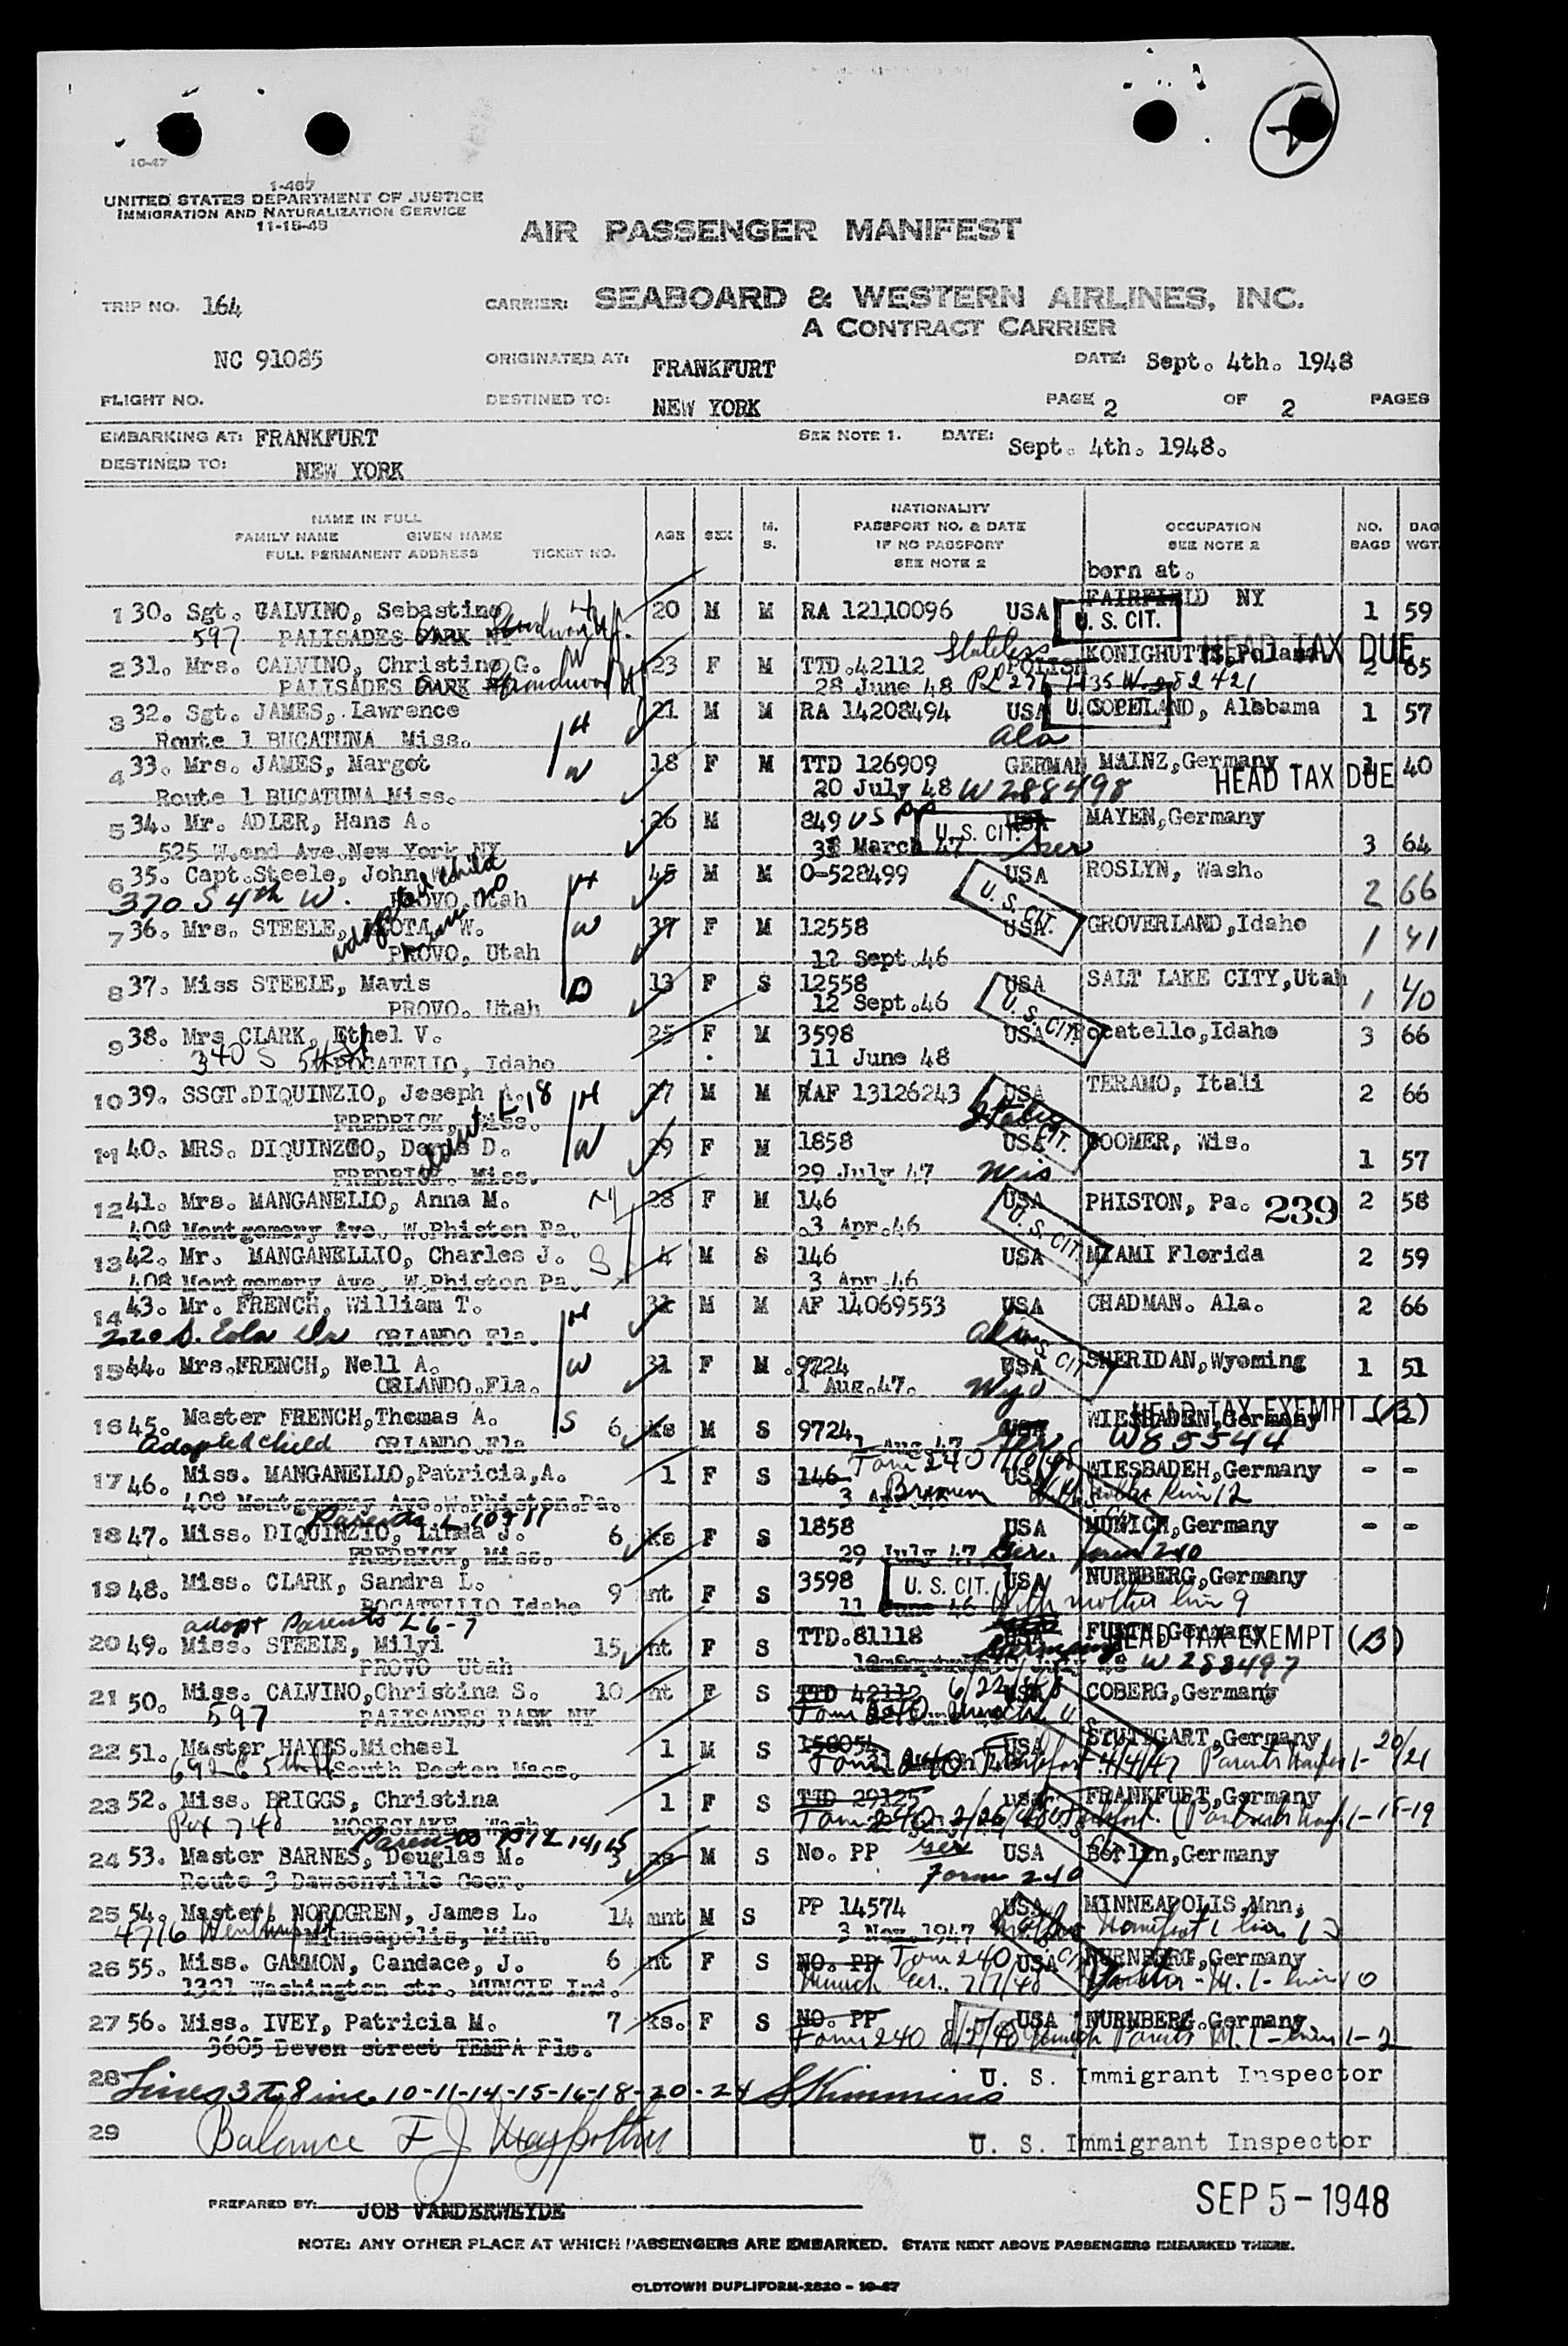 10-47
1-467
UNITED STATES DEPARTMENT OF JUSTICE
IMMIGRATION AND NATURALIZATION SERVICE
11-15-45
AIR PASSENGER MANIFEST
TRIP NO. 164
CARRIER: SEABOARD & WESTERN AIRLINES, INC.
A CONTRACT CARRIER
NC 91085
ORIGINATED AT: FRANKFURT
DATE: Sept. 4th. 1948
FLIGHT NO.
DESTINED TO: NEW YORK
PAGE 2 OF 2 PAGES
EMBARKING AT: FRANKFURT
SEE NOTE 1. DATE: Sept. 4th. 1948.
DESTINED TO: NEW YORK
NAME IN FULL
FAMILY NAME GIVEN NAME
FULL PERMANENT ADDRESS TICKET NO.
AGE SEX M. S.
NATIONALITY
PASSPORT NO. & DATE
IF NO PASSPORT
SEE NOTE 2
OCCUPATION
SEE NOTE 2
born at.
NO. BAGS
BAG WGT.
1 30. Sgt. CALVINO, Sebastino 20 M M RA 12110096 USA U. S. CIT. FAIRFIELD NY 1 59
597 PALISADES PARK NY
HEAD TAX DUE
2 31. Mrs. CALVINO, Christine G. W 23 F M TTD.42112 Stateless POLISH KONIGHUTTE, Poland 2 65
PALISADES PARK 28 June 48
3 32. Sgt. JAMES, Lawrence H 21 M M RA 14208494 USA COPELAND, Alabama 1 57
Route 1 BUCATUNA Miss. Ala
4 33. Mrs. JAMES, Margot W 18 F M TTD 126909 GERMAN MAINZ,Germany 1 40
Route 1 BUCATUNA Miss. 20 July 48 W 288498 HEAD TAX DUE
5 34. Mr. ADLER, Hans A. 26 M 849 US PP USA U. S. CIT. MAYEN,Germany
525 W.end Ave.New York NY March 47 Ger 3 64
6 35. Capt.Steele, John W. H 45 M M O-528499 USA ROSLYN, Wash. 2 66
370 S 4th W. PROVO,Utah U. S. CIT.
adopted child line 20
7 36. Mrs. STEELE, W. W 37 F M 12558 USA GROVERLAND,Idaho 1 41
PROVO, Utah 12 Sept.46
8 37. Miss STEELE, Mavis D 13 F S 12558 USA SALT LAKE CITY,Utah 1 40
PROVO. Utah 12 Sept.46 U. S. CIT.
9 38. Mrs CLARK, Ethel V. 25 F M 3598 USA ocatello,Idaho 3 66
340 S 5th POCATELLO, Idaho 11 June 48
10 39. SSGT.DIQUINZIO, Joseph A. H 27 M M RAF 13126243 USA TERAMO, Itali 2 66
FREDRICK, Miss. Italy
L 18
11 40. MRS. DIQUINZIO, D. W 29 F M 1858 USA BOOMER, Wis. 1 57
FREDRICK. Miss. 29 July 47 Wis
12 41. Mrs. MANGANELLO, Anna M. M 28 F M 146 USA PHISTON, Pa. 239 2 58
408 Montgomery Ave. W.Phiston Pa. 3 Apr.46 U. S. CIT.
13 42. Mr. MANGANELLIO, Charles J. S 4 M S 146 USA MIAMI Florida 2 59
408 Montgomery Ave. W.Phiston Pa. 3 Apr.46
14 43. Mr. FRENCH, William T. H 32 M M AF 14069553 USA CHADMAN. Ala. 2 66
220 S. Eola Dr ORLANDO Fla. Ala
15 44. Mrs.FRENCH, Nell A. W 31 F M 9724 USA SHERIDAN,Wyoming 1 51
ORLANDO.Fla. 1 Aug.47. Wyo
HEAD TAX EXEMPT (B)
16 45. Master FRENCH,Thomas A. S 6 ks M S 9724 USA WIESBADEN,Germany
adopted child ORLANDO.Fla 1 Aug 47 Ger W85544
17 46. Miss. MANGANELLO,Patricia,A. 1 F S 146 Form 240 USA WIESBADEH,Germany - -
408 Montgomery Ave.W.Phiston.Pa. 3 Apr Bremen With mother line 12
Parents L 10+11
18 47. Miss. DIQUINZIO, Linda J. 6 ks F S 1858 USA MUNICH,Germany - -
FREDRICK, Miss. 29 July 47 Ger. form 240
19 48. Miss. CLARK, Sandra L. 9 mt F S 3598 U. S. CIT. USA NURNBERG,Germany
POCATELLIO Idaho 11 June 46 With mother line 9
adopt Parents L 6-7
20 49. Miss. STEELE, Milyi 15 mt F S TTD.81118 Germany
PROVO Utah HEAD TAX EXEMPT (B) W 288497
21 50. Miss. CALVINO,Christina S. 10 mt F S TTD 42112 USA COBERG,Germany
597 PALISADES PARK NY Form 240 Munich
22 51. Master HAYES.Michael 1 M S 158054 USA STUTTGART,Germany
692 E 5th St South Boston Mass. Form 240 4/4/47 Parents Manifest 1-20/21
23 52. Miss. BRIGGS, Christina 1 F S TTD 29125 USA FRANKFURT,Germany
Box 748 MOSESLAKE, Wash Form 240 2/26/48 1-18-19
24 53. Master BARNES, Douglas M. 3 ms M S No. PP Ger USA Berlin,Germany
Route 3 Dawsonville Geor. Form 240
25 54. Master. NORDGREN, James L. 14 mnt M S PP 14574 USA MINNEAPOLIS,Mnn,
4716 Minneapolis, Minn. 3 Nov.1947 Mother Manifest 1 line 13
26 55. Miss. GAMMON, Candace, J. 6 mt F S NO. PP Form 240 USA NURNBERG,Germany
1321 Washington str. MUNCIE Ind. Munich Ger. 7/7/48
27 56. Miss. IVEY, Patricia M. 7 ks. F S NO. PP USA NURNBERG.Germany
3605 Devon street TEMPA Flo. Form 240 Munich Parents M. 1 - lines 1-2
28 Lines 3 to 8 inc 10-11-14-15-16-18-20-24 U. S. Immigrant Inspector
29 Balance F J U. S. Immigrant Inspector
PREPARED BY: JOB VANDERWEYDE
SEP 5-1948
NOTE: ANY OTHER PLACE AT WHICH PASSENGERS ARE EMBARKED. STATE NEXT ABOVE PASSENGERS EMBARKED THERE.
OLDTOWN DUPLIFORM-2820 - 10-47